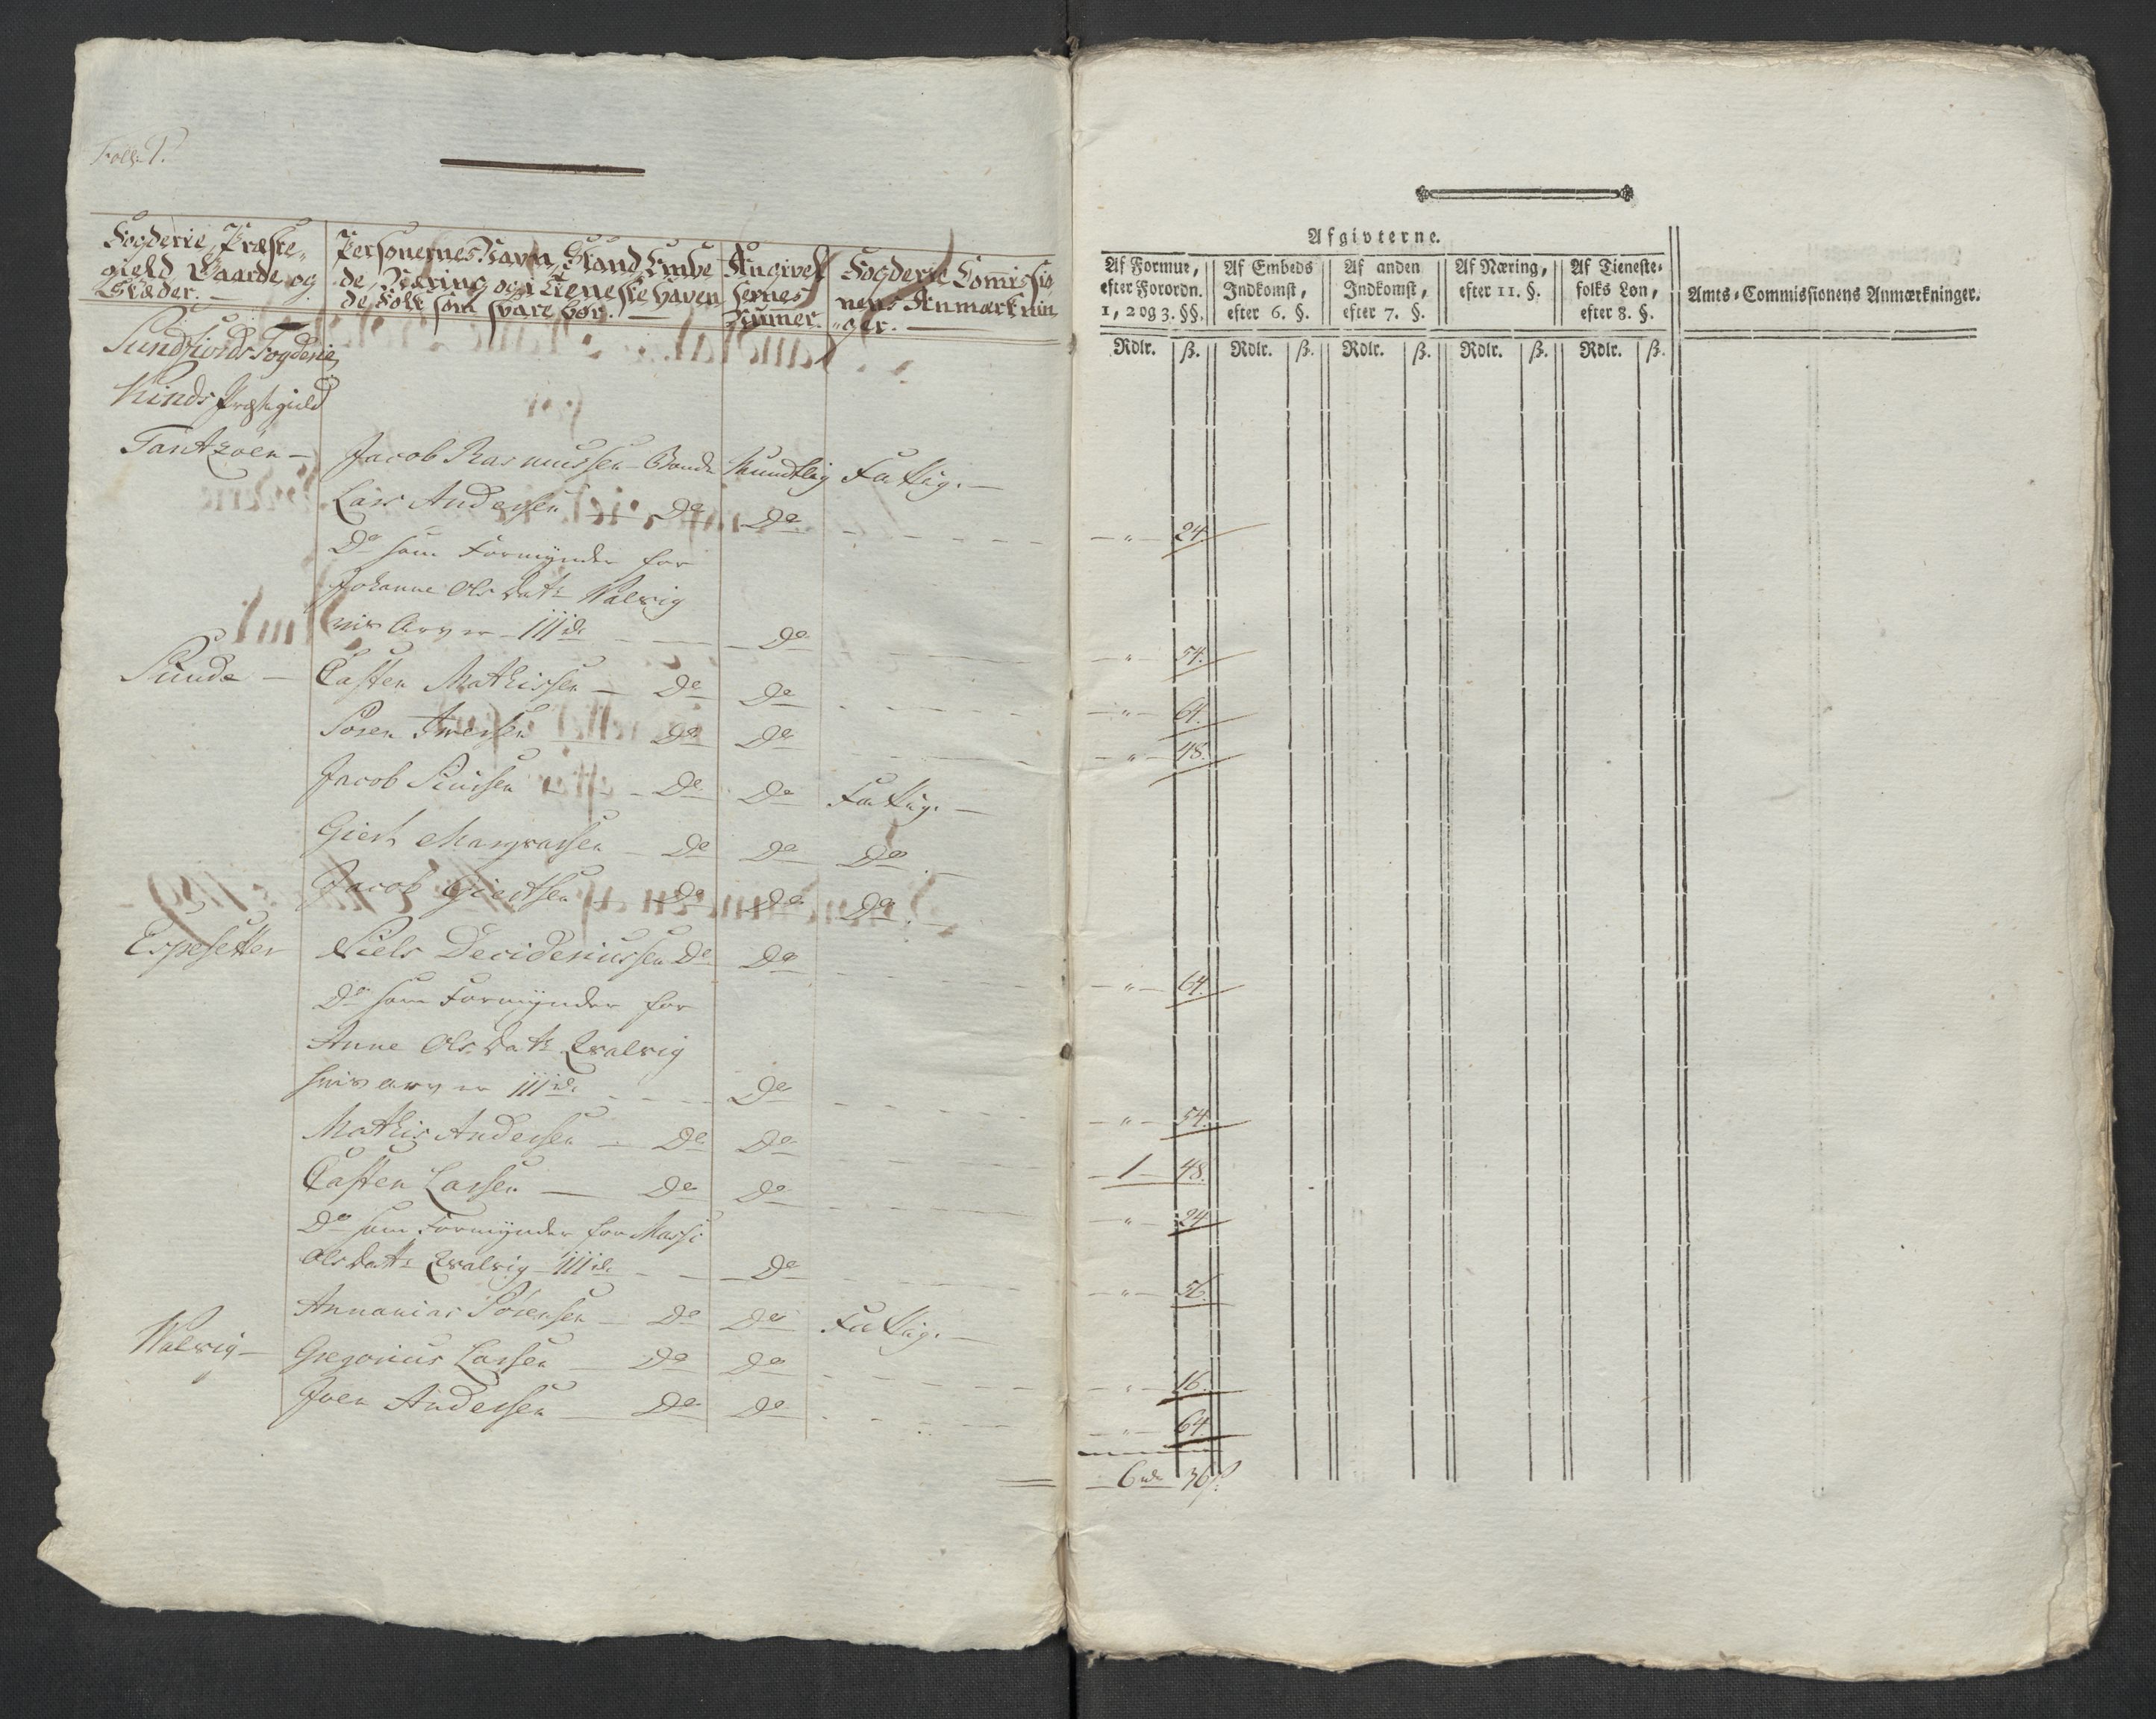 Foll: 1.
Fogderie, Præste-
gield, Gaarde og
Stæder. —
Personernes Navn, Stand, Embe
de, Næring og i Tieneste haven
de Folk som svare bør. —
Angivel
sernes
Numer.
Fogderie Comissio
nens Anmærknin
ger. —
Sundfiords Fogderie
Kinds Præstegield
Tantzöen — Jacob Rasmussen — Bonde Mundtlig Fattig. —
Lars Andersen — Do Do
Do som Formynder for
Johanne Olsdattr Walvig
Do
Sunde — Casten Mathissen — Do Do
Sören Iversen — Do Do
Jacob — Do Do Fattig. —
Giert — Do Do Do
Jacob Giertsen — Do Do Do
Espesetter Niels Decideriussen Do Do
Do som Formynder for
Anne Olsdattr Qvalvig
Do
Mathis Andersen — Do Do
Casten Larsen — Do Do
Do som Formynder for
Olsdattr Qvalvig Do
Annanias Sörensen — Do Do Fattig. —
Walvig — Gregorius Larsen — Do Do
Joen Andersen — Do Do
Afgivterne.
Af Formue,
efter Forordn.
1, 2 og 3. §§.
Af Embeds
Indkomst,
efter 6. §.
Af anden
Indkomst,
efter 7. §.
Af Næring,
efter 11. §.
Af Tieneste-
folks Løn,
efter 8. §.
Amts-Commissionens Anmærkninger.
Rdlr. ß. Rdlr. ß. Rdlr. ß. Rdlr. ß. Rdlr. ß.
— " — 24.
— " — 54.
— " — 64.
— " — 48.
— " — 64.
— " — 54.
— 1 — 48.
— " — 24.
— " — 56.
— " — 16.
— " — 64.
6 rdr 36 ß.